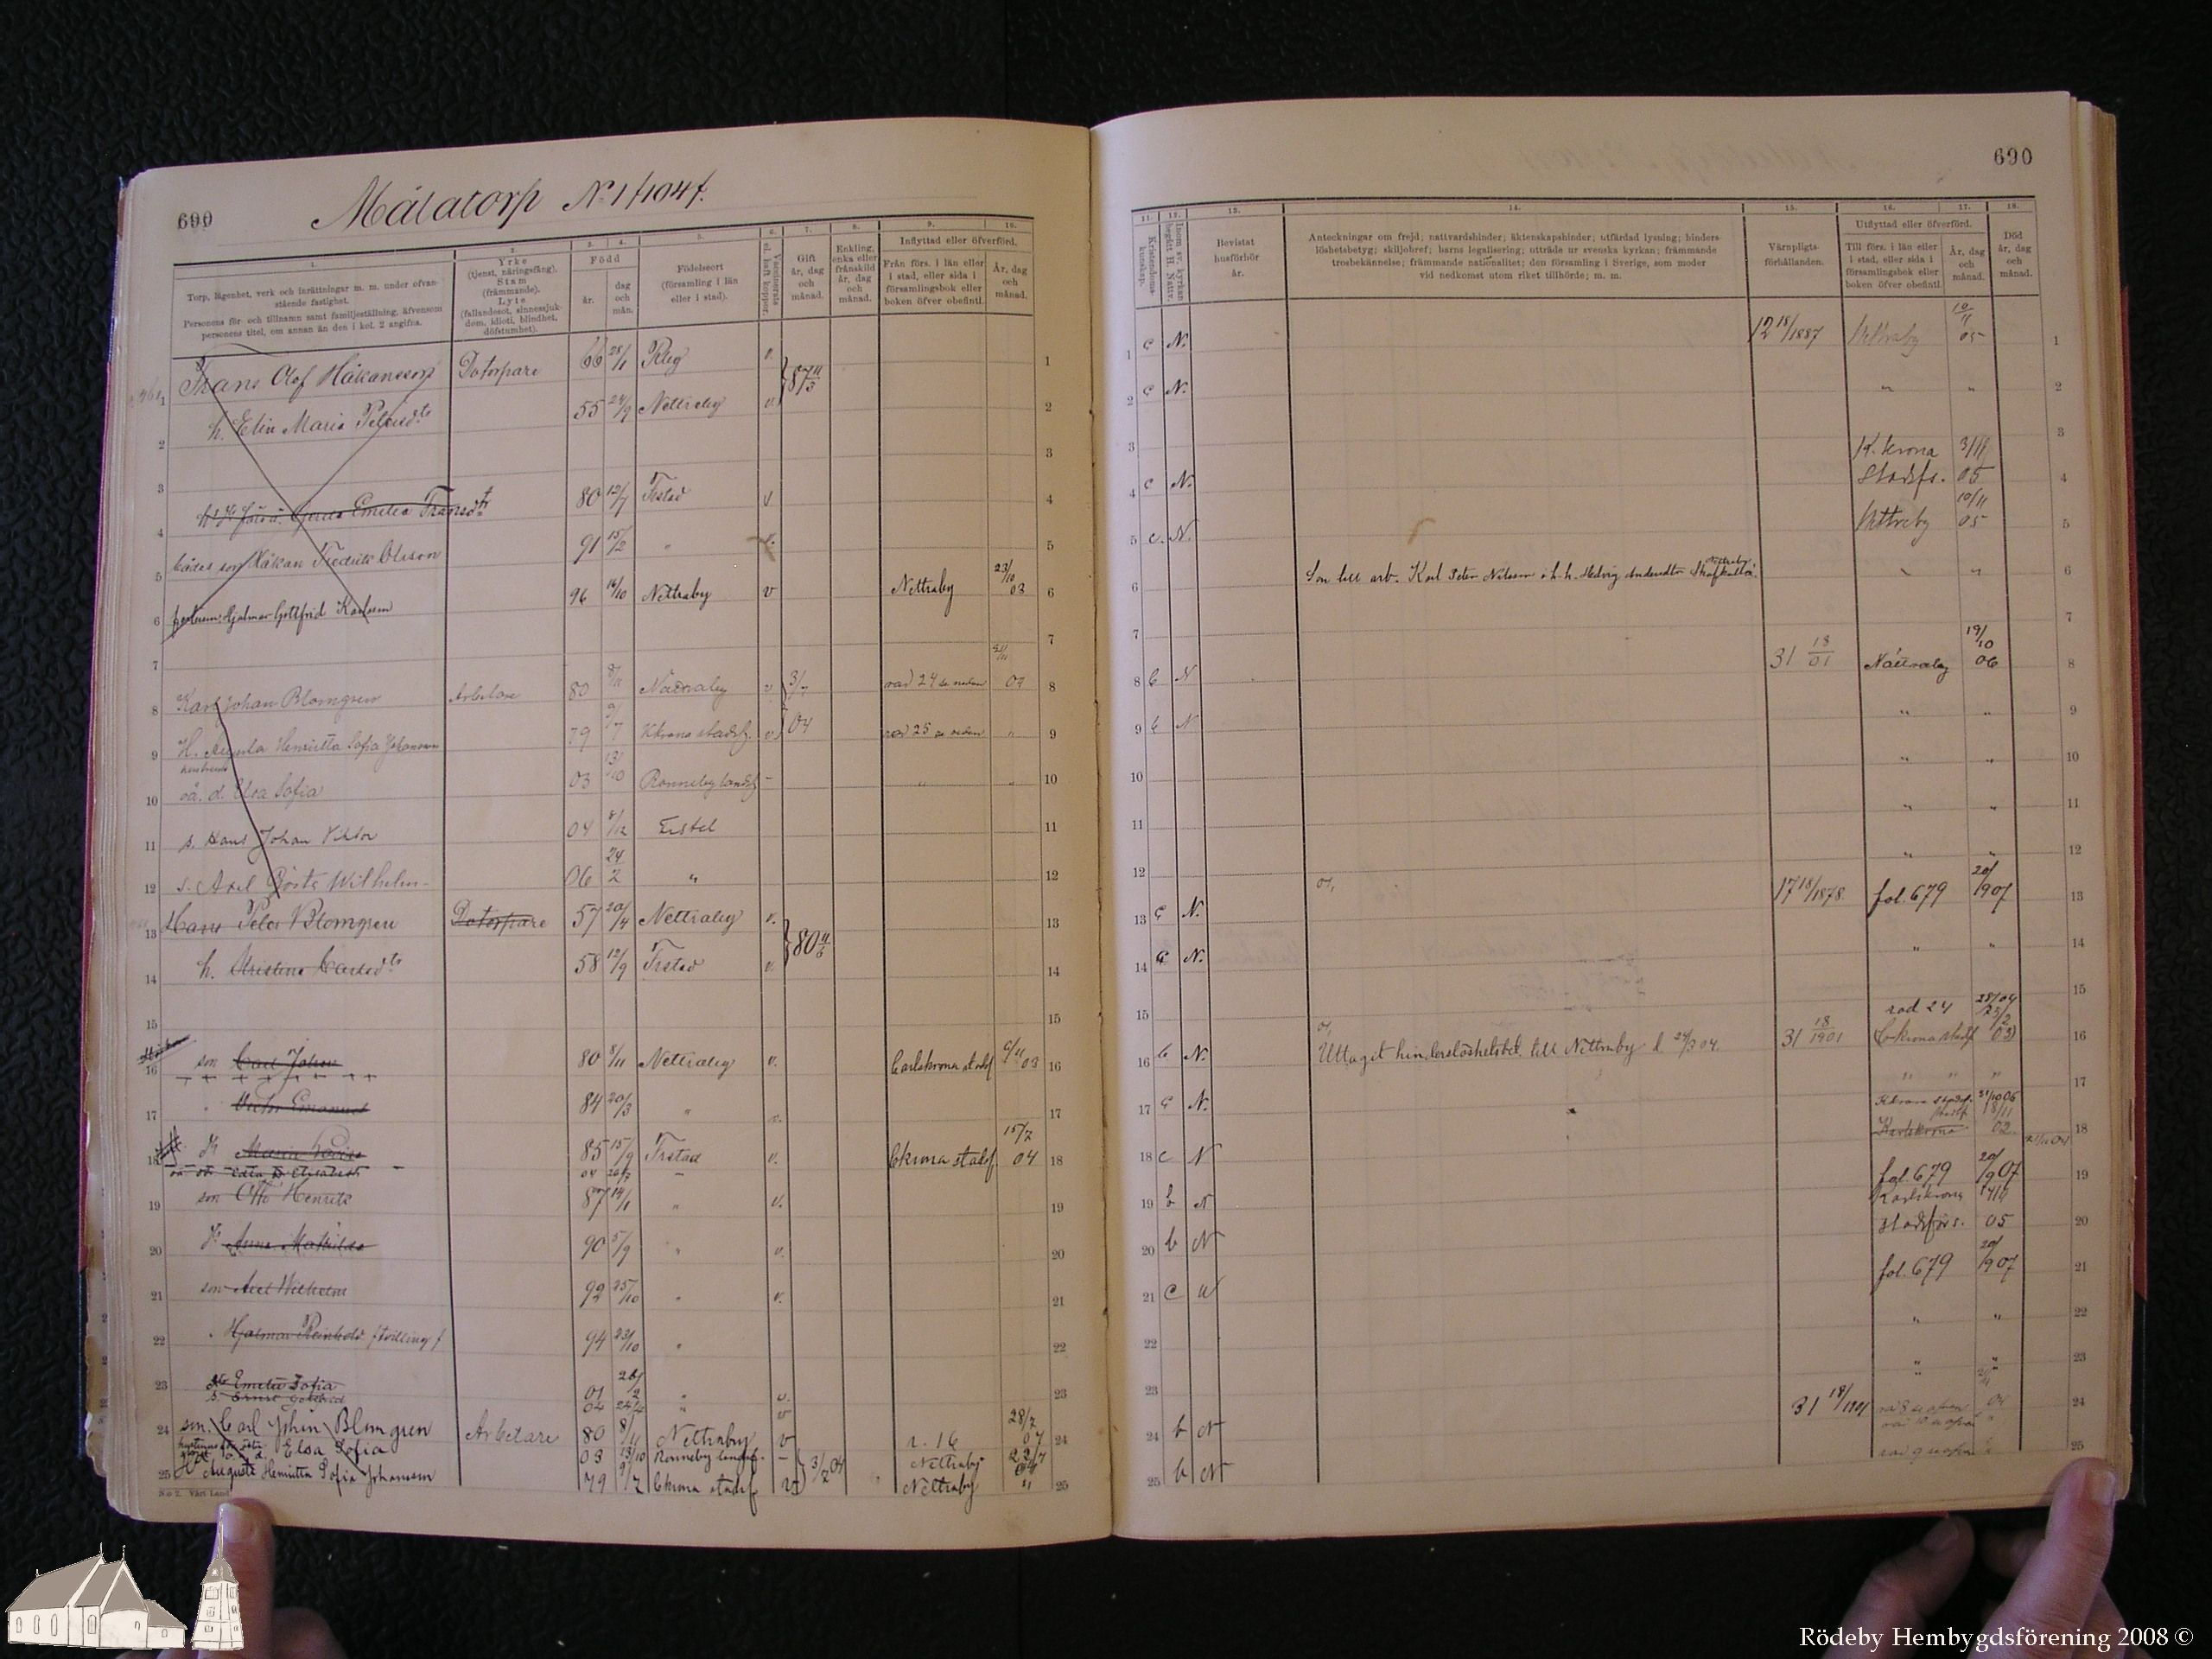 690
Målatorp No 1 f 104 f.
1.
Torp, lägenhet, verk och inrättningar m. m. under ofvanstående fastighet.
Personens för- och tillnamn samt familjeställning, äfvensom personens titel, om annan än den i kol. 2 angifna.
2.
Yrke
(tjenst, näringsfång).
Stam
(främmande).
Lyte
(fallandesot, sinnessjukdom, idioti, blindhet, döfstumhet).
3. 4.
Född
år.
dag och mån.
5.
Födelseort
(församling i län eller i stad).
6.
Vaccinerats el. haft koppor.
7.
Gift
år, dag och månad.
8.
Enkling, enka eller frånskild
år, dag och månad.
9. 10.
Inflyttad eller öfverförd.
Från förs. i län eller i stad, eller sida i församlingsbok eller boken öfver obefintl.
År, dag och månad.
1 Frans Olof Håkansson Dotorpare 66 28/1 v. 87 1
2 h. Elin Maria Petersdtr 55 24/9 Nettraby v. 2
3 3
4 Gerda Emelia Fransdtr 80 12/7 Frstad v 4
5 bådas son Håkan Fredrik Olsson 91 15/2 " v. 5
6 fosterson: Hjalmar Gottfrid Karlsson 96 16/10 Nettraby v Nettraby 23/10 03 6
7 7
8 Karl Johan Blomgren Arbetare 80 8/11 Nättraby v 3/7 04 rad 24 se nedan 04 8
9 H. Augusta Henrietta Sofia Johansson 79 9/7 Kkrona stadsf. v rad 25 se nedan " 9
10 oä. d. Elsa Sofia 03 13/10 Ronneby landsf - " " 10
11 s. Hans Johan Viktor 04 8/12 Frstad 11
12 s. Axel Gösta Wilhelm 06 24/2 " 12
13 Hans Peter Blomgren Dotorpare 57 20/4 Nettraby v. 80 13
14 h. Kristina Carlsdtr 58 12/9 Frstad v. 14
15 15
16 son Carl Johan 80 8/11 Nettraby v. Carlskrona stadsf 6/11 03 16
17 " Victor Emanuel 84 20/3 " v. 17
18 Dr Maria Lovisa 85 15/9 Frstad v. Ckrona stadsf. 15/7 04 18
19 son Otto Henrik 87 14/1 " v. 19
20 Dr Anna Mathilda 90 5/9 " v. 20
21 son Axel Wilhelm 92 25/10 " v. 21
22 " Hjalmar Reinhold f tvilling f 94 23/10 " 22
23 dtr Emelia Sofia 01 28/2 " v. 23
s. Ernst Gottfrid 04 24/4 " v
24 son Carl Johan Blomgren Arbetare 80 8/11 Nettraby v r. 16 28/7 04 24
Elsa Sofia 03 13/10 Ronneby landsf. - Nettraby 23/7 04
25 Augusta Henrietta Sofia Johansson 79 9/7 Ckrona stadsf v 3/7 04 Nettraby " 25
No 2. Vårt Land
690
11.
Kristendomskunskap.
12.
Inom sv. kyrkan begått H. Nattv.
13.
Bevistat husförhör år.
14.
Anteckningar om frejd; nattvardshinder; äktenskapshinder; utfärdad lysning; hinderslöshetsbetyg; skiljobref; barns legalisering; utträde ur svenska kyrkan; främmande trosbekännelse; främmande nationalitet; den församling i Sverige, som moder vid nedkomst utom riket tillhörde; m. m.
15.
Värnpligtsförhållanden.
16. 17.
Utflyttad eller öfverförd.
Till förs. i län eller i stad, eller sida i församlingsbok eller boken öfver obefintl.
År, dag och månad.
18.
Död
år, dag och månad.
1 c N. 12 18/1887 Nettraby 10/11 05 1
2 c N. " " 2
3 K. krona 3/11 3
4 c N. Stadsfs. 05 4
5 c. N. Nettraby 10/11 05 5
6 Son till arb. Karl Peter Nilsson o. h. h. Hedvig Andersdtr Nettraby. " " 6
7 7
8 b N 31 18/01 Nättraby 19/10 06 8
9 b N " " 9
10 " " 10
11 " " 11
12 " " 12
13 c N. 17 18/1878. fol. 679 20/9 07 13
14 c N. " " 14
15 rad 24 28/7 04 15
16 b N. Uttagit hinderslöshetsbet. till Nettraby d. 24/3 04. 31 18/1901 Ckrona stadsf 03 16
17 c N. " " " 17
18 c N Kkrona stadsf. 05 Karlskrona 18/11 02 18
19 b N fol. 679 20/9 07 19
20 b N Karlskrona stadsförs. 05 20
21 c N fol. 679 20/9 07 21
22 " " 22
23 " " 23
24 b N 31 18/1901 04 24
25 b N 25
Rödeby Hembygdsförening 2008 ©